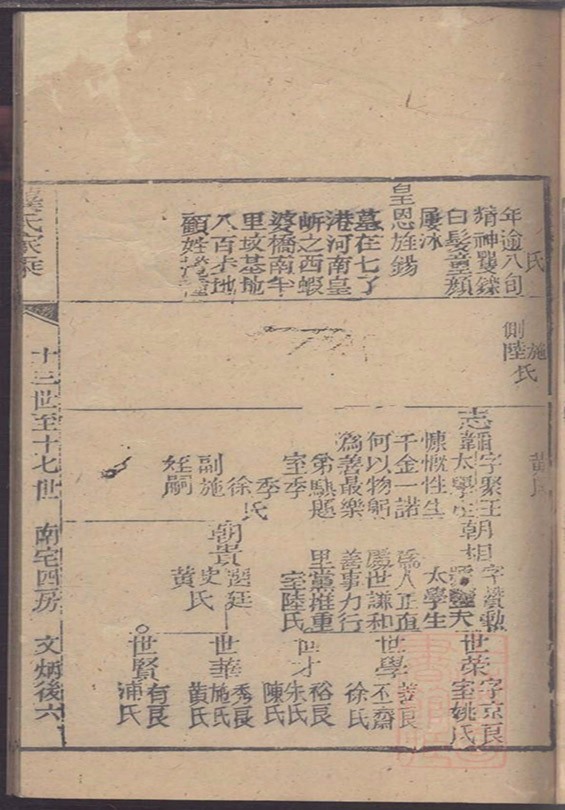 氏
年逾八旬
精神矍鑠
白髮童顏
屢沐
皇恩旌錫
墓在七了
港河南皇
岍之西蝦
婆橋南半
里坟基地
八百步地
顧姓
施氏
側陸氏
黃氏
志
字聚王
太學生
慷慨性生
千金一諾
何以物躬
為善最樂
第
室季
季氏
徐氏
副施
姪嗣
朝相
字贊勳
太學生
為人正直
處世謙和
善事力行
里黨推重
室陸氏
朝貴
廷
史氏
黃氏
世榮
字京良
室姚氏
世學
善良
丕齋
徐氏
世才
裕良
朱氏
陳氏
世華
秀良
施氏
黃氏
世賢
有良
浦氏
氏家乘
十三世至十七世 南宅四房 文炳後六